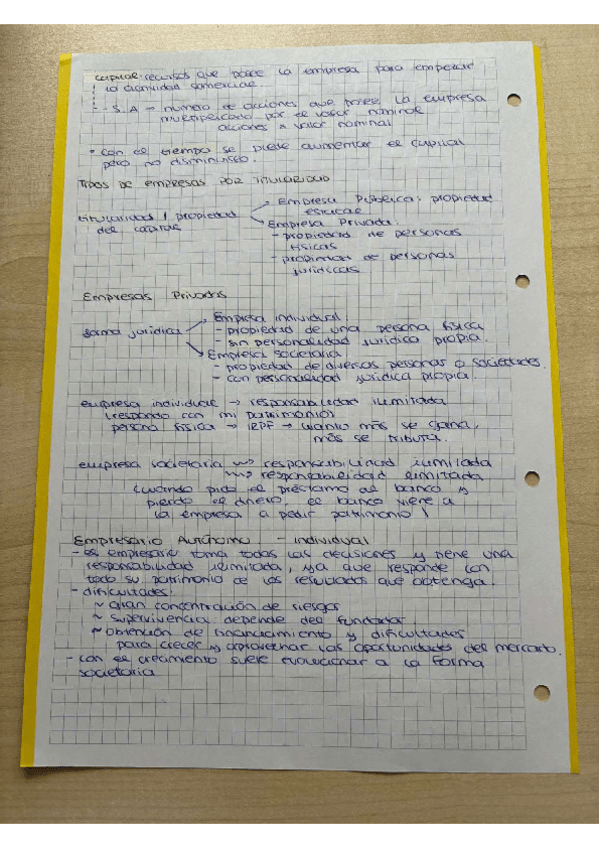 capital: recursos que posee la empresa para empezar
la actividad comercial
- S.A → número de acciones que posee la empresa
multiplicado por el valor nominal
acciones x valor nominal
• con el tiempo se puede aumentar el capital
pero no disminuirlo.
TIPOS DE EMPRESAS POR TITULARIDAD
titularidad / propiedad
del capital
Empresa Pública: propiedad
estatal
Empresa Privada:
- propiedad de personas
físicas
- propiedad de personas
jurídicas
Empresas Privadas
forma jurídica
Empresa individual:
- propiedad de una persona física
- sin personalidad jurídica propia.
Empresa societaria
- propiedad de diversas personas o sociedades.
- con personalidad jurídica propia.
empresa individual → responsabilidad ilimitada
(respondo con mi patrimonio)
persona física → IRPF → cuanto más se gana,
más se tributa.
empresa societaria → responsabilidad ilimitada
→ responsabilidad limitada
(cuando pido el préstamo al banco y
pierdo el dinero, el banco viene a
la empresa a pedir patrimonio)
Empresario Autónomo - individual
- el empresario toma todas las decisiones y tiene una
responsabilidad ilimitada, ya que responde con
todo su patrimonio de los resultados que obtenga.
- dificultades:
~ gran concentración de riesgos
~ supervivencia depende del fundador
~ obtención de financiamiento y dificultades
para crecer y aprovechar las oportunidades del mercado.
- con el crecimiento suele evolucionar a la forma
societaria